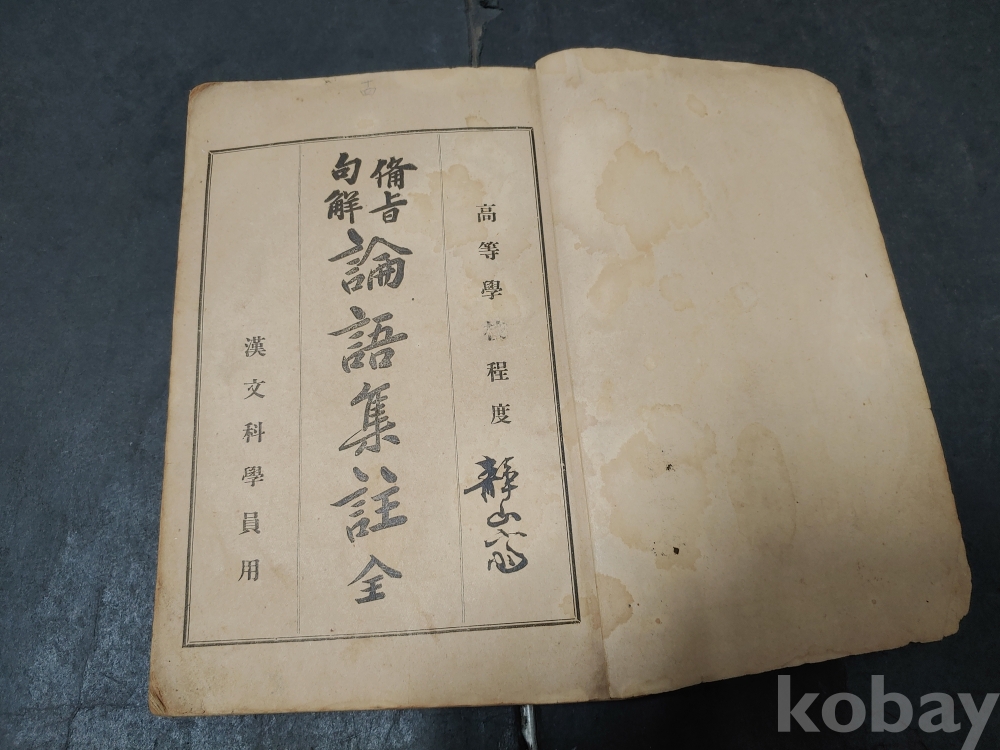 高等學校程度
靜山齋
備旨
句解
論語集註 全
漢文科學員用
kobay